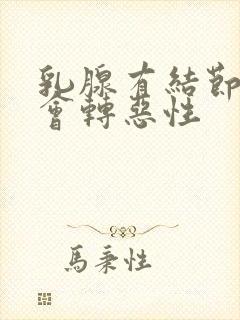 乳腺有結節
會轉惡性
馬秉性